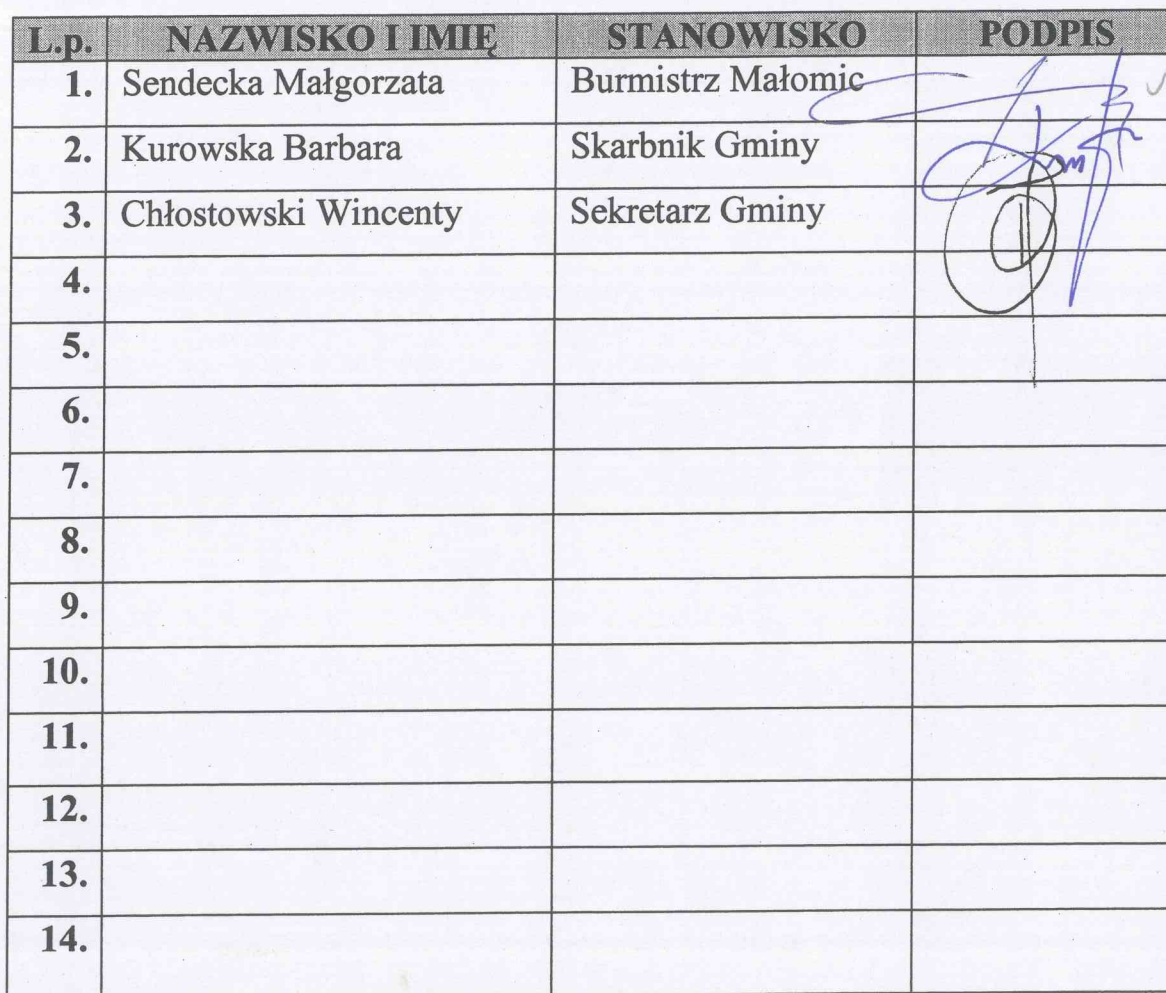 L.p. NAZWISKO I IMIĘ STANOWISKO PODPIS
1. Sendecka Małgorzata Burmistrz Małomic
2. Kurowska Barbara Skarbnik Gminy
3. Chłostowski Wincenty Sekretarz Gminy
4.
5.
6.
7.
8.
9.
10.
11.
12.
13.
14.